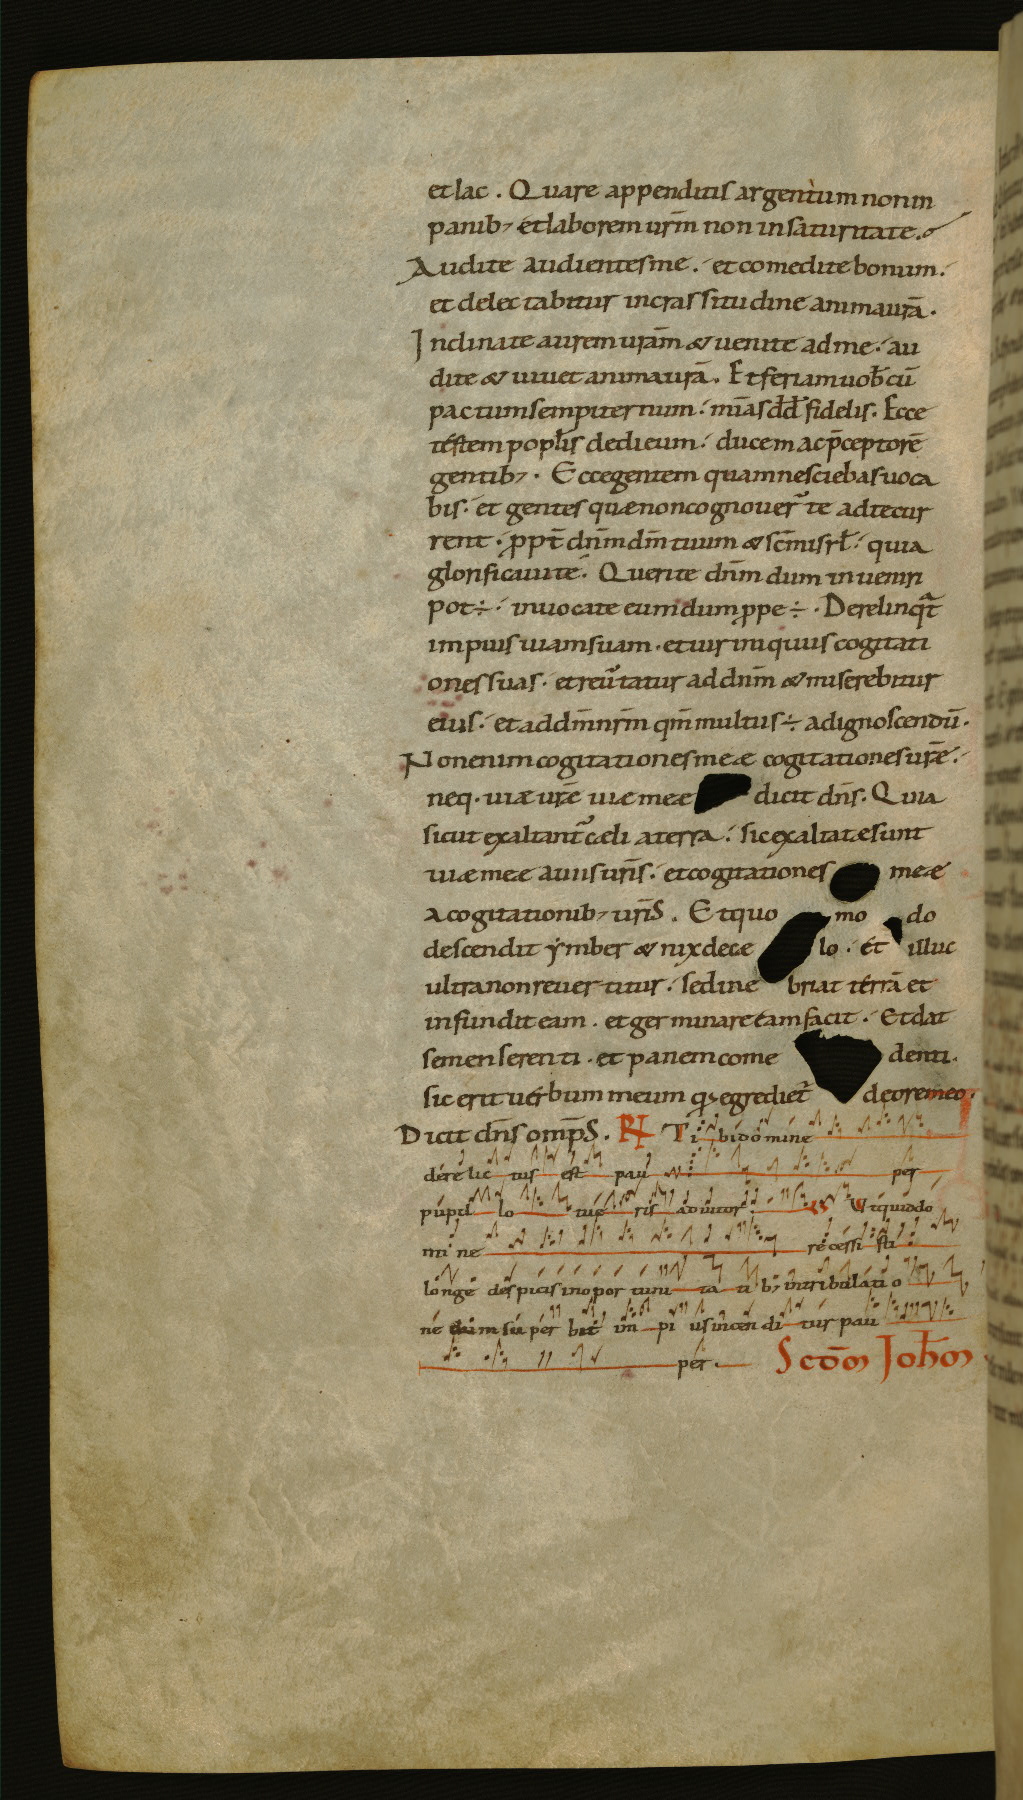 et lac . Quare appenditis argentum non in
panib; et laborem urm̄ non in saturitate .
Audite audientes me . et comedite bonum .
et delectabitur in crassitudine anima urā .
Inclinate aurem urām & uenite ad me . au
dite & uiuet anima urā . Et feriam uob̄ cū
pactum sempiternum . mīas dd̄ fidelis . Ecce
testem poplis dedi eum . ducem ac p̄ceptorē
gentib; . Ecce gentem quam nesciebas uoca
bis . et gentes quæ non cognouer̄ te ad te cur
rent . ppt̄ dn̄m dm̄ tuum & sc̄m isrł . quia
glorificauit te . Querite dn̄m dum inueniri
pot÷ . inuocate eum dum ꝓpe ÷ . Derelinq̄t
impius uiam suam . et uir iniquus cogitati
ones suas . et reūtatur ad dn̄m & miserebitur
eius . et ad dm̄ nrm̄ qm̄ multus ÷ ad ignoscendū .
Non enim cogitationes meæ cogitationes urē .
neq . uiæ urē uiæ meæ dicit dn̄s . Quia
sicut exaltant̄ cæli a terra . sic exaltatæ sunt
uiæ meæ a uiis urīs . et cogitationes meæ
a cogitationib; urīs . Et quo mo do
descendit ymber & nix de cę lo . et illuc
ultra non reuertitur . sed ine briat terrā et
infundit eam . et germinare eam facit . Et dat
semen serenti . et panem come denti .
sic erit uerbum meum q; egrediet̄ de ore meo .
Dicit dn̄s omp̄s . R̸ Ti bi domine
derelic tus est pau per
pupil lo tu e ris adiutor . V Ut quid do
mi ne recessi sti
longe despicis in opor tuni ta ti b; in tribulati o
ne dum super bit im pi us incen di tur pau
per . Scdm̄ Joh̄m